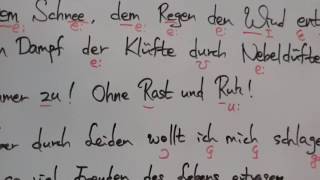 em Schnee, dem Regen den Wind ent
e: e: e: e: ɪ
Dampf der Klüfte durch Nebeldüfte
e: ʊ e:
mmer zu! Ohne Rast und Ruh!
u:
er durch Leiden wollt ich mich schlage
ɔ ç ç
so viel Freuden des Lebens ertragen